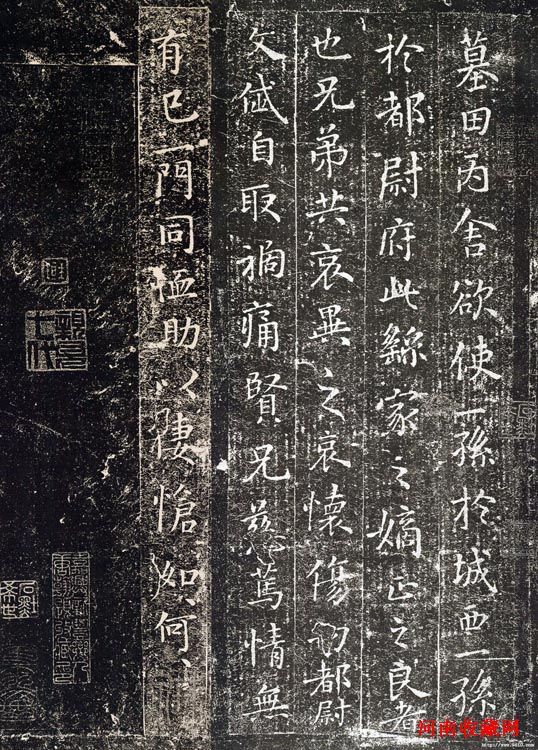 墓田丙舍欲使一孫於城西一孫
於都尉府此繇家之嫡正之良者
也兄弟共哀異之哀懷傷切都尉
文岱自取禍痛賢兄慈篤情無
有已一門同恤助以悽愴如、何、
河南收藏网